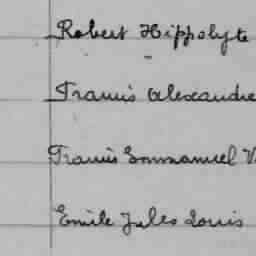 Robert Hippolyte
Francis Alexandre
Francis Emmanuel V
Emile Jules Louis